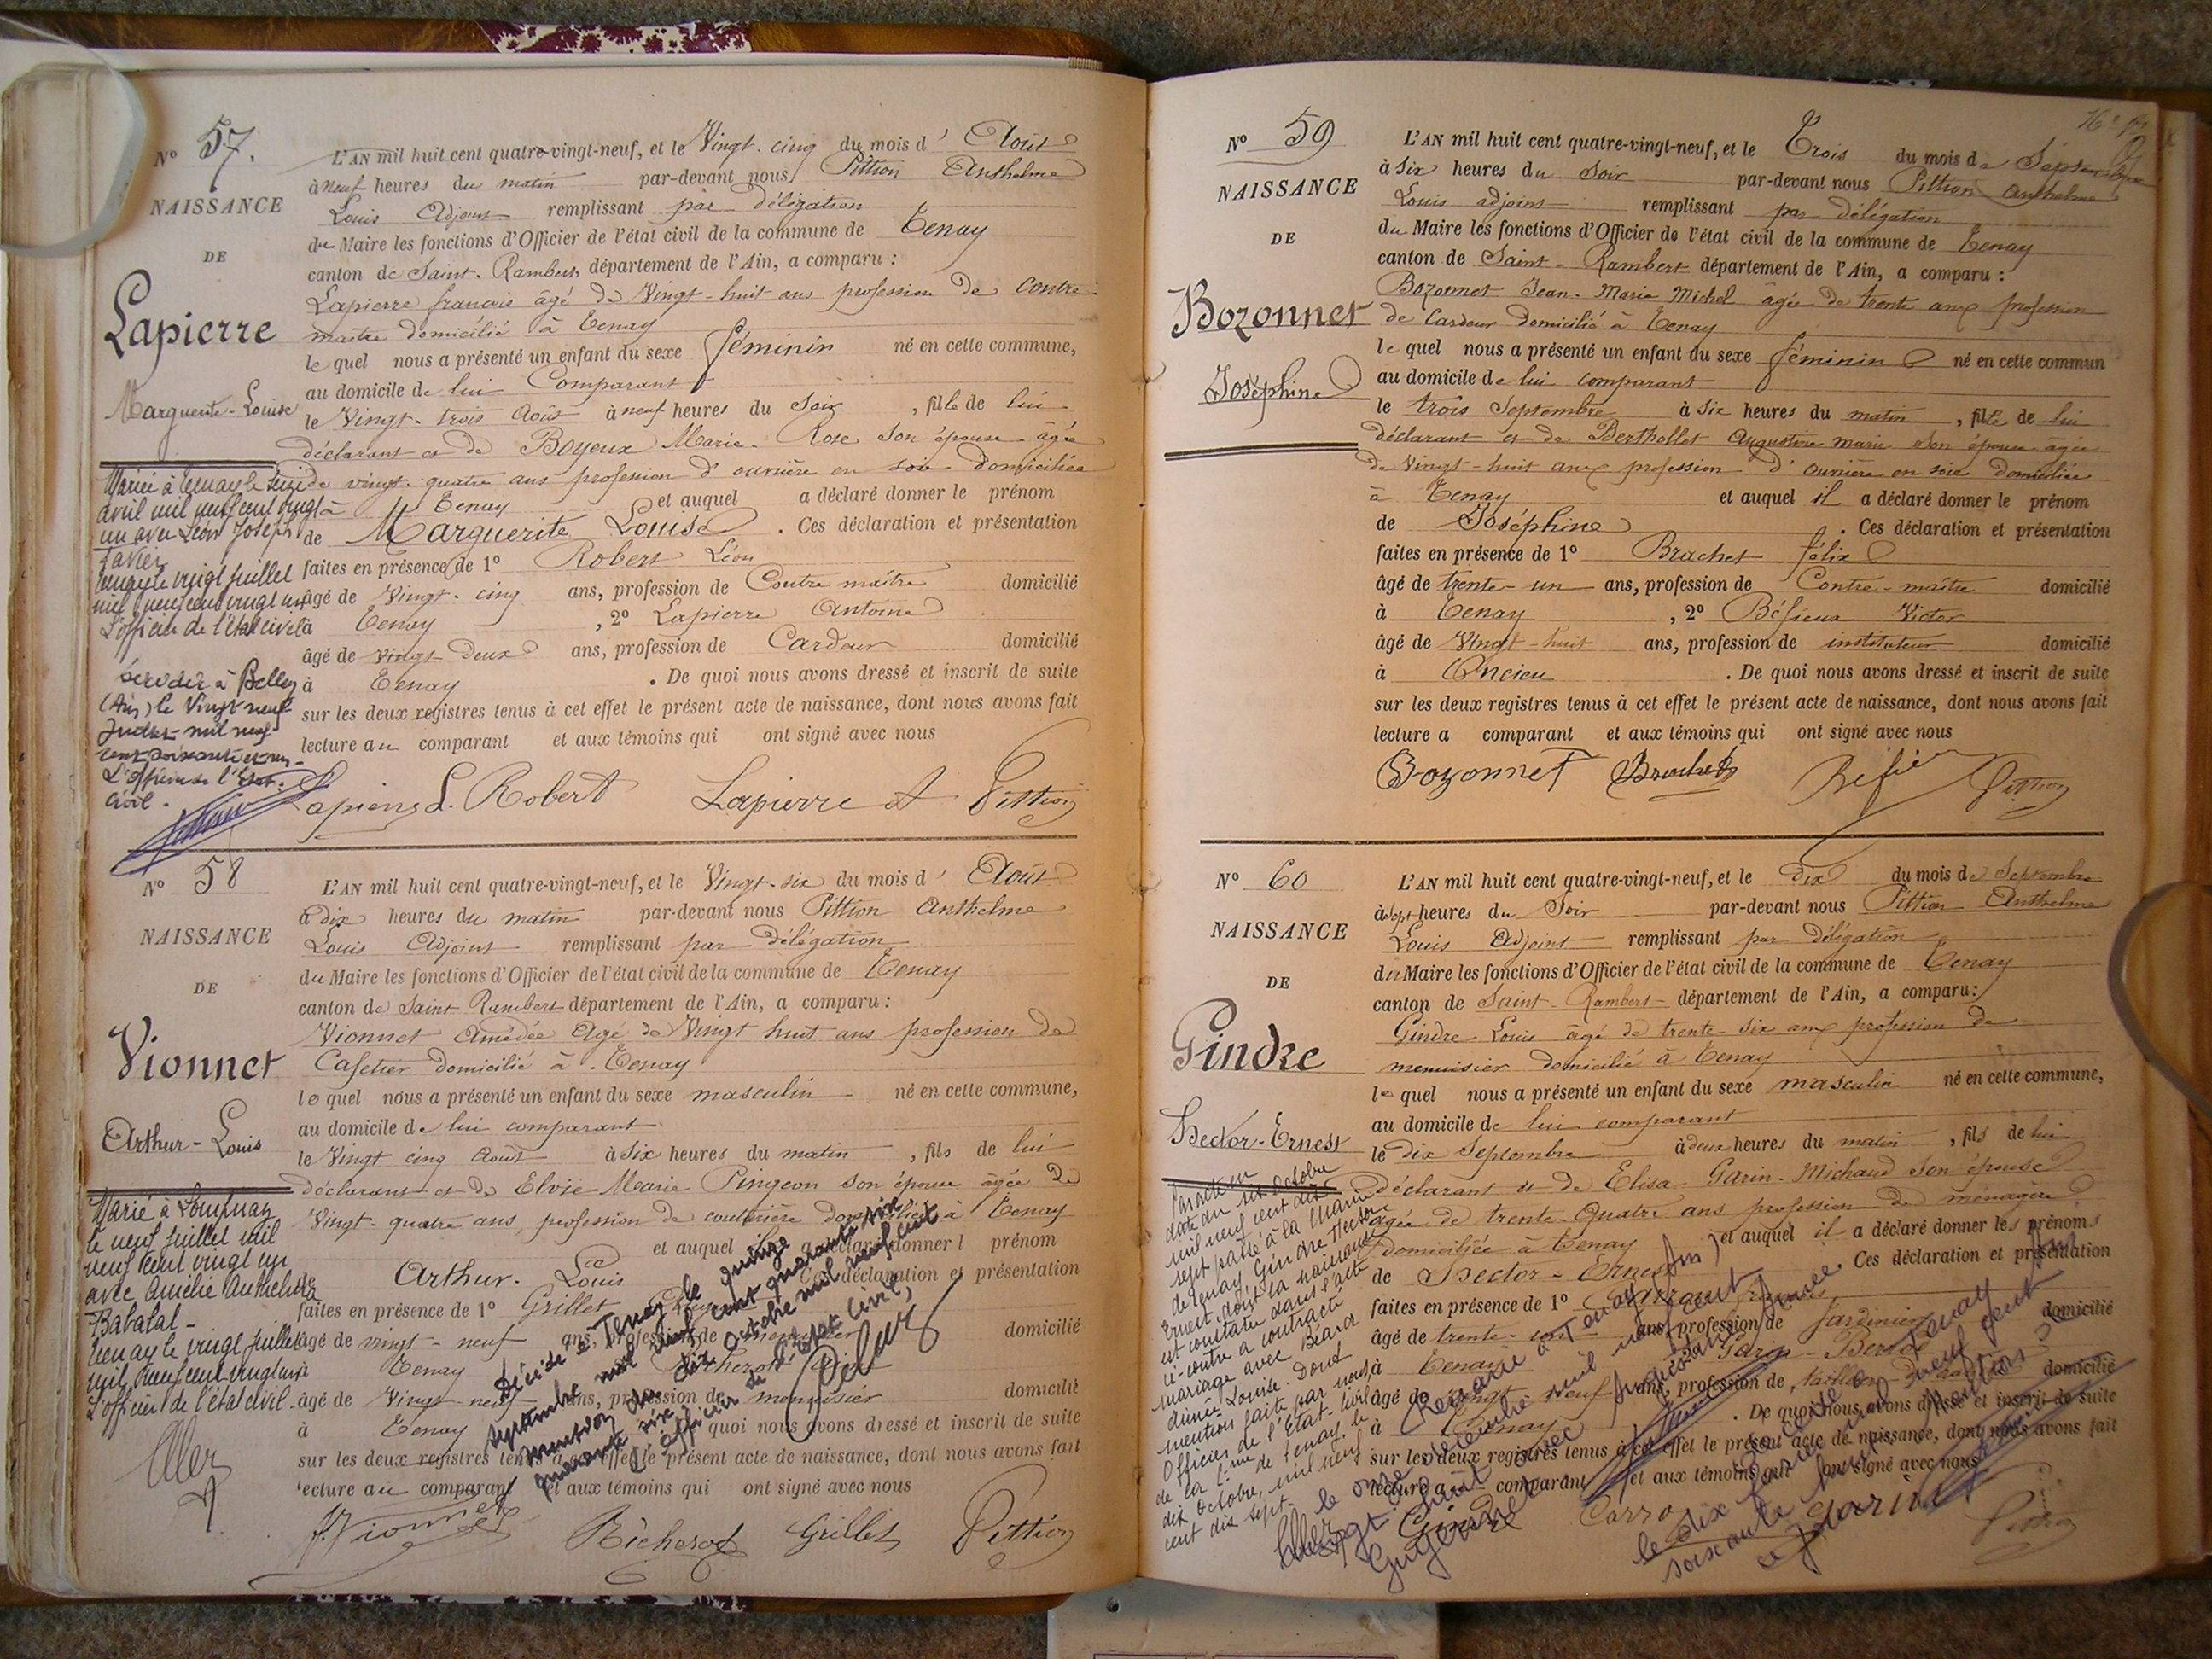 N° 57.
NAISSANCE
DE
Lapierre
Marguerite-Louise
Mariée à Tenay le seize
avril mil neuf cent vingt
un avec Léon Joseph
Favier
Tenay le vingt juillet
mil neuf cent vingt un
L'officier de l'état civil
Décédée à Belley
(Ain) le vingt neuf
Juillet mil neuf
cent soixante et un
L'officier de l'Etat
Civil.
L'AN mil huit cent quatre-vingt-neuf, et le Vingt. cinq du mois d' Août
à neuf heures du matin par-devant nous Pittion Anthelme
Louis Adjoint remplissant par délégation
du Maire les fonctions d'Officier de l'état civil de la commune de Tenay
canton de Saint-Rambert département de l'Ain, a comparu :
Lapierre françois âgé de Vingt-huit ans profession de Contre-
maître domicilié à Tenay
le quel nous a présenté un enfant du sexe féminin né en cette commune,
au domicile de lui Comparant
le Vingt-trois Août à neuf heures du Soir, fille de lui
déclarant et de Boyeux Marie-Rose son épouse âgée
de vingt-quatre ans profession d'ouvrière en soie domiciliée
à Tenay et auquel a déclaré donner le prénom
de Marguerite Louise. Ces déclaration et présentation
faites en présence de 1° Robert Léon
âgé de Vingt-cinq ans, profession de Contre maître domicilié
à Tenay, 2° Lapierre Antoine
âgé de vingt-deux ans, profession de Cardeur domicilié
à Tenay. De quoi nous avons dressé et inscrit de suite
sur les deux registres tenus à cet effet le présent acte de naissance, dont nous avons fait
lecture au comparant et aux témoins qui ont signé avec nous
L. Robert Lapierre A Pittion
N° 58
NAISSANCE
DE
Vionnet
Arthur-Louis
Marié à
le neuf juillet mil
neuf cent vingt un
avec Amélie Anthelmette
Babalat-
Tenay le vingt juillet
mil neuf cent vingt un
L'officier de l'état civil
L'AN mil huit cent quatre-vingt-neuf, et le Vingt-six du mois d' Août
à dix heures du matin par-devant nous Pittion Anthelme
Louis Adjoint remplissant par délégation
du Maire les fonctions d'Officier de l'état civil de la commune de Tenay
canton de Saint Rambert département de l'Ain, a comparu :
Vionnet Amédée âgé de Vingt huit ans profession de
Cafetier domicilié à Tenay
le quel nous a présenté un enfant du sexe masculin né en cette commune,
au domicile de lui comparant
le Vingt cinq Août à six heures du matin, fils de lui
déclarant et de Elvie-Marie Pingeon son épouse âgée de
Vingt-quatre ans, profession de couturière domiciliée à Tenay
et auquel il a déclaré donner l prénom
de Arthur. Louis Ces déclaration et présentation
faites en présence de 1° Grillet
âgé de vingt-neuf ans, profession de menuisier domicilié
à Tenay
âgé de Vingt-neuf ans, profession de menuisier domicilié
à Tenay De quoi nous avons dressé et inscrit de suite
sur les deux registres tenus à cet effet le présent acte de naissance, dont nous avons fait
lecture au comparant et aux témoins qui ont signé avec nous
Vionnet Richerot Grillet Pittion
Décédé à Tenay le quinze
septembre mil neuf cent quarante six
Mention du dix Octobre mil neuf cent
quarante six
L'Officier de l'Etat Civil,
N° 59
NAISSANCE
DE
Bozonnet
Joséphine
L'AN mil huit cent quatre-vingt-neuf, et le Trois du mois de Septembre
à six heures du Soir par-devant nous Pittion Anthelme
Louis adjoint remplissant par délégation
du Maire les fonctions d'Officier de l'état civil de la commune de Tenay
canton de Saint-Rambert département de l'Ain, a comparu :
Bozonnet Jean-Marie Michel âgé de trente ans profession
de Cardeur domicilié à Tenay
le quel nous a présenté un enfant du sexe féminin né en cette commun
au domicile de lui comparant
le trois Septembre à six heures du matin, fille de lui
déclarant et de Berthollet Augustine marie son épouse âgée
de Vingt-huit ans profession d'ouvrière en soie domiciliée
à Tenay et auquel il a déclaré donner le prénom
de Joséphine. Ces déclaration et présentation
faites en présence de 1° Brachet félix
âgé de trente-un ans, profession de Contre-maître domicilié
à Tenay, 2° Béfieux Victor
âgé de Vingt-huit ans, profession de instituteur domicilié
à Oncieu. De quoi nous avons dressé et inscrit de suite
sur les deux registres tenus à cet effet le présent acte de naissance, dont nous avons fait
lecture a comparant et aux témoins qui ont signé avec nous
Bozonnet Brachet Pittion
N° 60
NAISSANCE
DE
Gindre
Hector-Ernest
Par acte en
date du sept octobre
mil neuf cent dix
sept passé à la Mairie
de Tenay Gindre Hector
Ernest dont la naissance
est constatée dans l'acte
ci-contre a contracté
mariage avec Béard
Aimée Louise. Dont
mention faite par nous,
Officier de l'Etat-Civil
de la Cne de Tenay, le
dix Octobre, mil neuf
cent dix sept.
L'AN mil huit cent quatre-vingt-neuf, et le dix du mois de Septembre
à sept heures du Soir par-devant nous Pittion Anthelme
Louis Adjoint remplissant par délégation
du Maire les fonctions d'Officier de l'état civil de la commune de Tenay
canton de Saint-Rambert département de l'Ain, a comparu :
Gindre Louis âgé de trente-six ans profession de
menuisier domicilié à Tenay
le quel nous a présenté un enfant du sexe masculin né en cette commune,
au domicile de lui comparant
le dix Septembre à deux heures du matin, fils de lui
déclarant et de Elisa Garin-Michaud son épouse
âgée de trente-quatre ans profession de ménagère
domiciliée à Tenay et auquel il a déclaré donner les prénoms
de Hector-Ernest Ces déclaration et présentation
faites en présence de 1°
âgé de trente- ans, profession de Jardinier domicilié
à Tenay Garin-
âgé de Vingt-neuf ans, profession de domicilié
à Tenay. De quoi nous avons dressé et inscrit de suite
sur les deux registres tenus à cet effet le présent acte de naissance, dont nous avons fait
lecture a comparant et aux témoins qui ont signé avec nous
Gindre Garin
Remarié à Tenay (Ain)
le onze décembre mil neuf cent
vingt huit avec
Décédé à Tenay
le dix mil neuf cent
soixante Mention